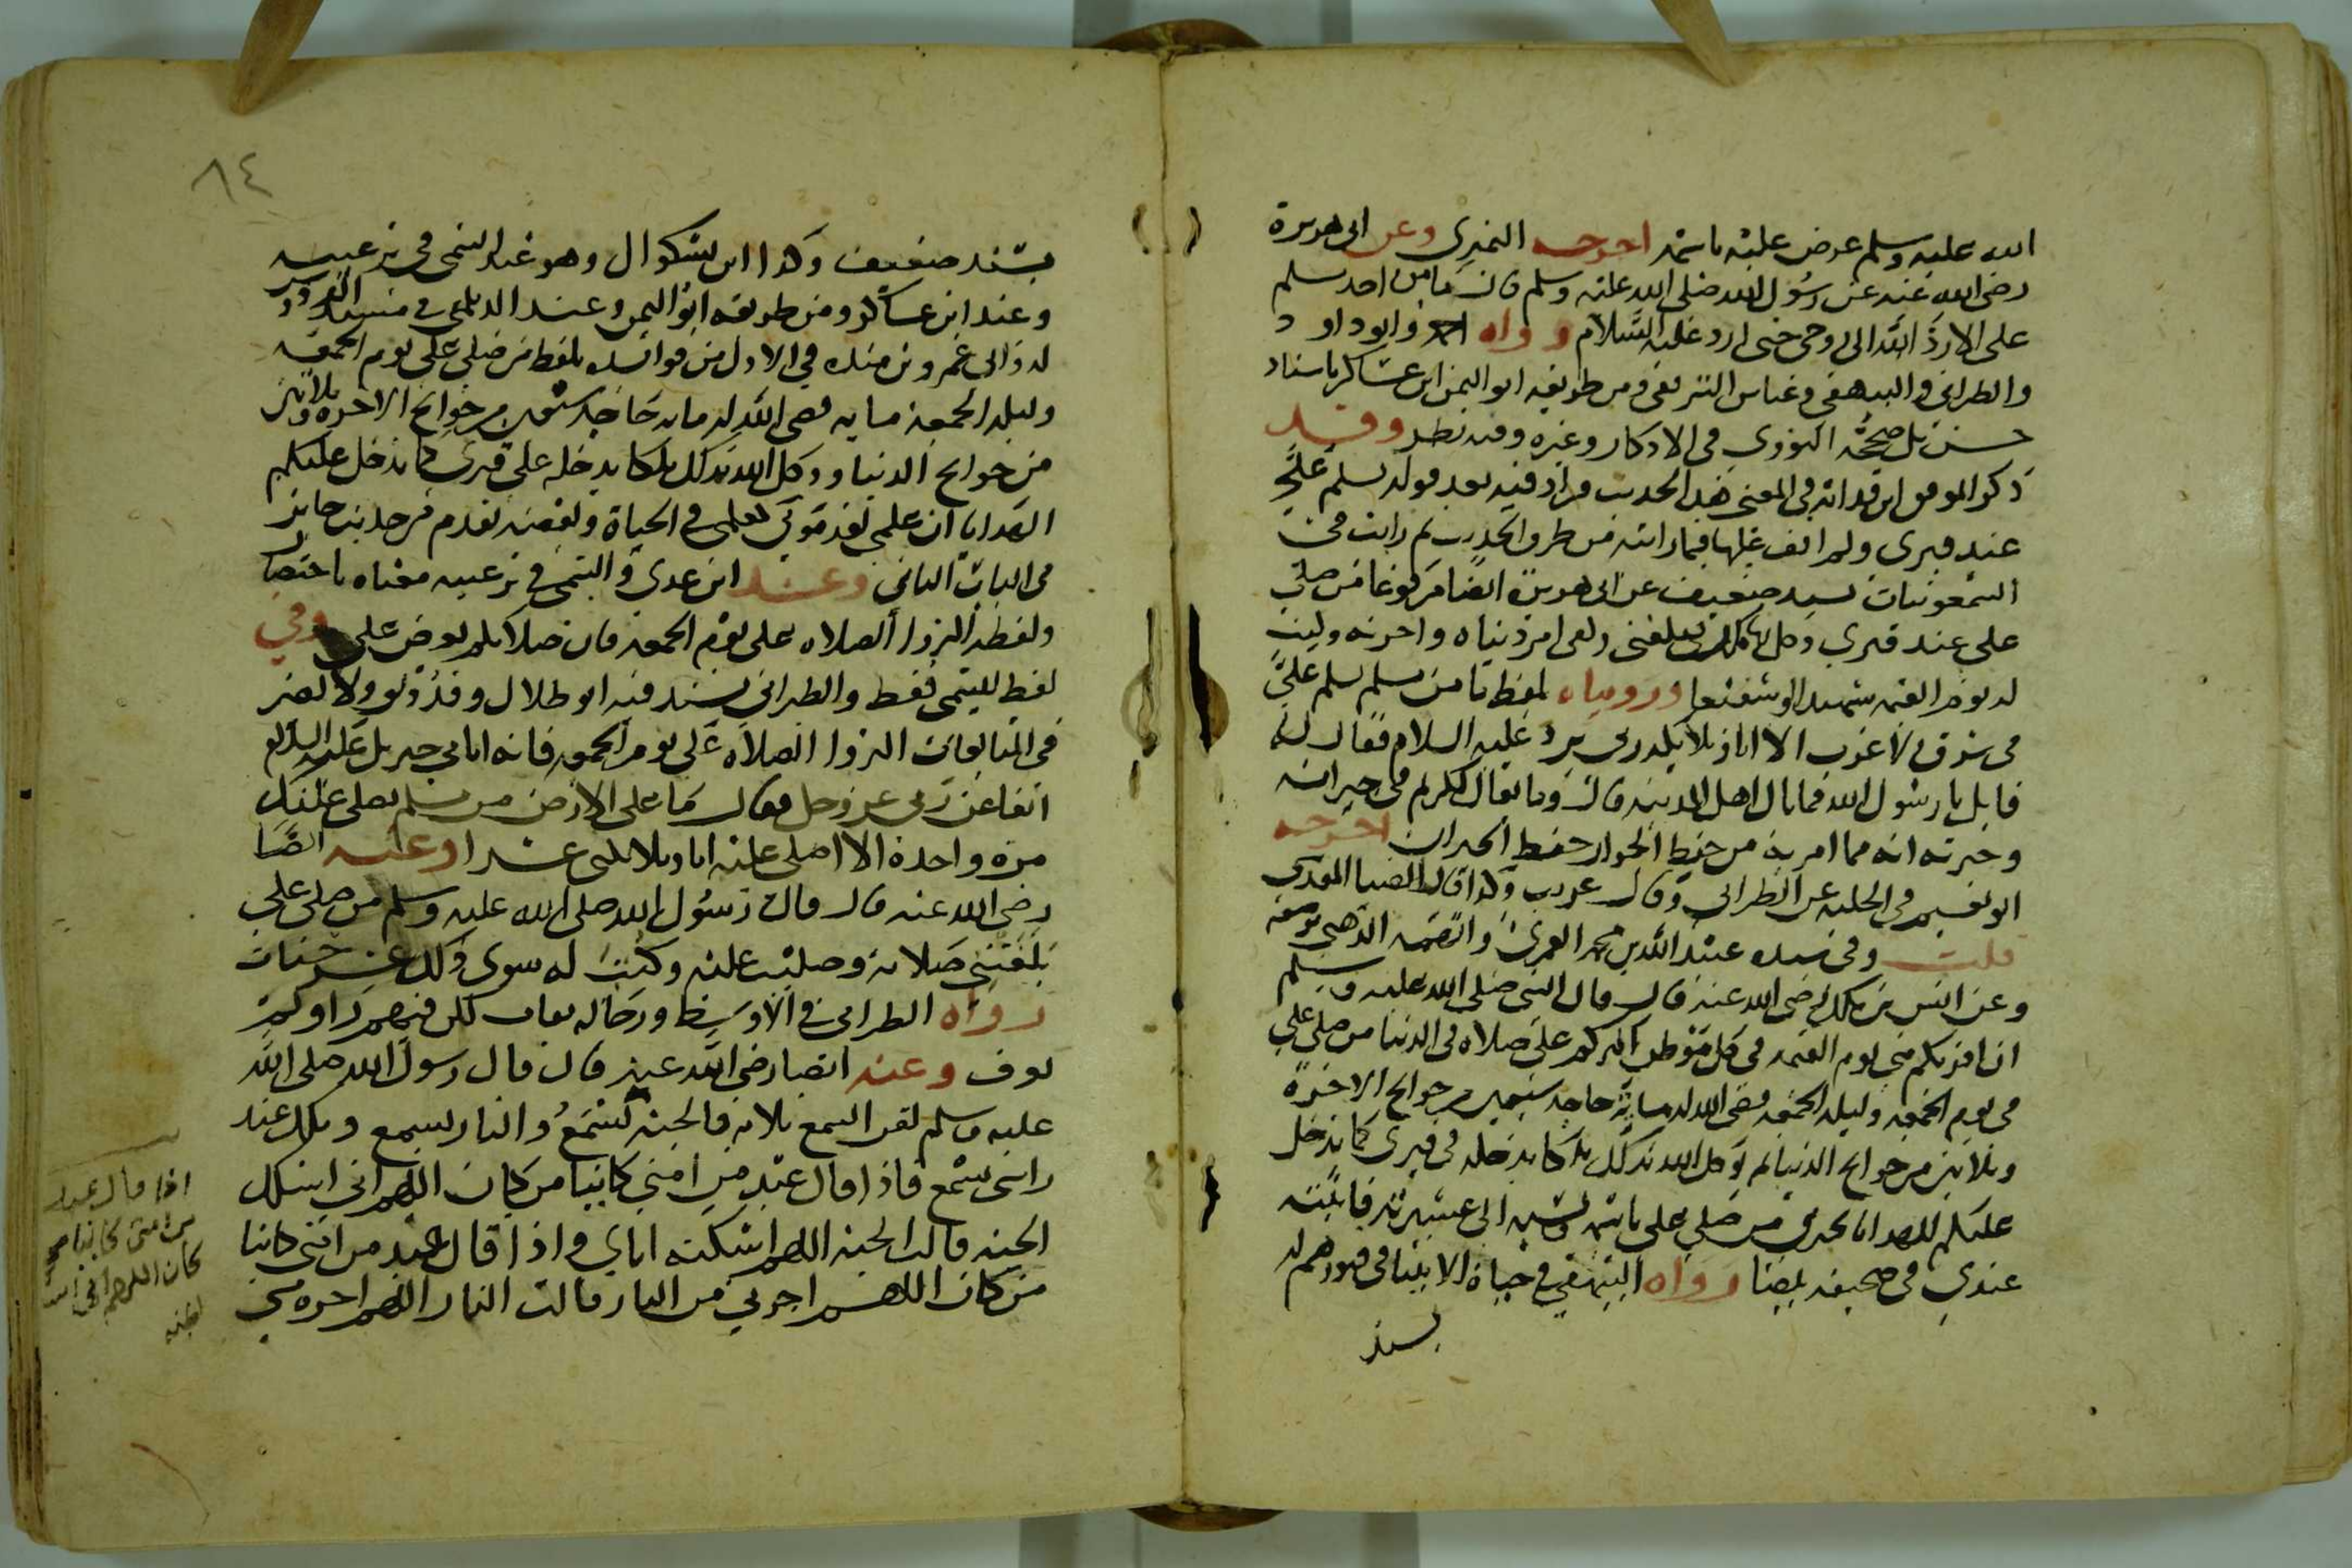 الله عليه وسلم عرض عليه باسمه اخرجه النميري وعن ابى هريرة
رضى الله عنه عن رسول الله صلى الله عليه وسلم قال ما من احد يسلم
على الا رد الله الى روحى حتى ارد عليه السلام رواه احمد وابو داود
والطبرانى والبيهقى وعباس الترقفى ومن طريقه ابو اليمن ابن عساكر باسناد
حسن بل صححه النووى فى الاذكار وغيره وفيه نظر وقد
ذكر الموفق ابن قدامة فى المغنى هذا الحديث فزاد فيه بعد قوله يسلم على
عند قبرى ولم اقف عليها فيما رايته من طرق الحديث ثم رايت فى
السمعونيات بسند ضعيف عن ابى هريرة ايضا مرفوعا من صلى
على عند قبرى وكل بها ملك يبلغنى وكفى امر دنياه واخرته وكنت
له يوم القيمة شهيدا او شفيعا ورويناه بلفظ ما من مسلم يسلم على
فى شرق ولا غرب الا انا وملائكة ربى نرد عليه السلام فقال له
قايل يا رسول الله فما بال اهل المدينة قال وما يقال لكريم فى جيرانه
وجيرته انه مما امر به من حفظ الجوار حفظ الجيران اخرجه
ابو نعيم فى الحلية عن الطبرانى وقال غريب وكذا قال الضيا المقدسى
قلت وفى سنده عبد الله بن محمد العمرى واتهمه الذهبى بوضعه
وعن انس بن مالك رضى الله عنه قال قال النبى صلى الله عليه وسلم
ان اقربكم منى يوم القيمة فى كل موطن اكثركم على صلاة فى الدنيا من صلى على
فى يوم الجمعة وليلة الجمعة قضى الله له ماية حاجة سبعين من حوايج الاخرة
وثلاثين من حوايج الدنيا ثم يوكل الله بذلك ملكا يدخله فى قبرى كما يدخل
عليكم الهدايا يخبرنى من صلى على باسمه ونسبه الى عشيرته فاثبته
عندى فى صحيفة بيضا رواه البيهقى فى حياة الانبيا فى قبورهم له
بسند
٨٤
بسند ضعيف وكذا ابن بشكوال وهو عند التيمى فى ترغيبه
وعند ابن عساكر ومن طريقه ابو اليمن وعند الديلمى فى مسند الفردوس
له والى عمرو بن منده فى الاول من فوائده بلفظ من صلى على يوم الجمعة
وليلة الجمعة ماية قضى الله له ماية حاجة سبعين من حوايج الاخرة وثلاثين
من حوايج الدنيا ووكل الله بذلك ملكا يدخله على قبرى كما يدخل عليكم
الهدايا ان علمى بعد موتى كعلمى فى الحياة وبعضه تقدم من حديث جابر
فى الباب الثانى وعند ابن عدى والتيمى فى ترغيبه معناه باختصار
ولفظه اكثروا الصلاة على يوم الجمعة فان صلاتكم تعرض على وفي
لفظ للتيمى فقط والطبرانى بسند فيه ابو ظلال وقد وثق ولا يضر
فى المتابعات اكثروا الصلاة على يوم الجمعة فانه اتانى جبريل عليه السلام
انفا عن ربى عز وجل فقال ما على الارض من مسلم يصلى عليك
مرة واحدة الا صليت عليه انا وملائكتى عشرا وعنه ايضا
رضى الله عنه قال قال رسول الله صلى الله عليه وسلم من صلى على
بلغتنى صلاته وصليت عليه وكتبت له سوى ذلك عشر حسنات
رواه الطبرانى فى الاوسط ورجاله ثقات لكن فيهم راو لم
يعرف وعنه ايضا رضى الله عنه قال قال رسول الله صلى الله
عليه وسلم لقن السمع ثلاثة فالجنة تسمع والنار تسمع وملك عند
راسى يسمع فاذا قال عبد من امتى كاينا من كان اللهم انى اسئلك
الجنة قالت الجنة اللهم اسكنه اياى واذا قال عبد من امتى كاينا
من كان اللهم اجرنى من النار قالت النار اللهم اجره منى
اذا قال عبد
من امتى كاينا من
كان اللهم انى اسئلك
الجنة